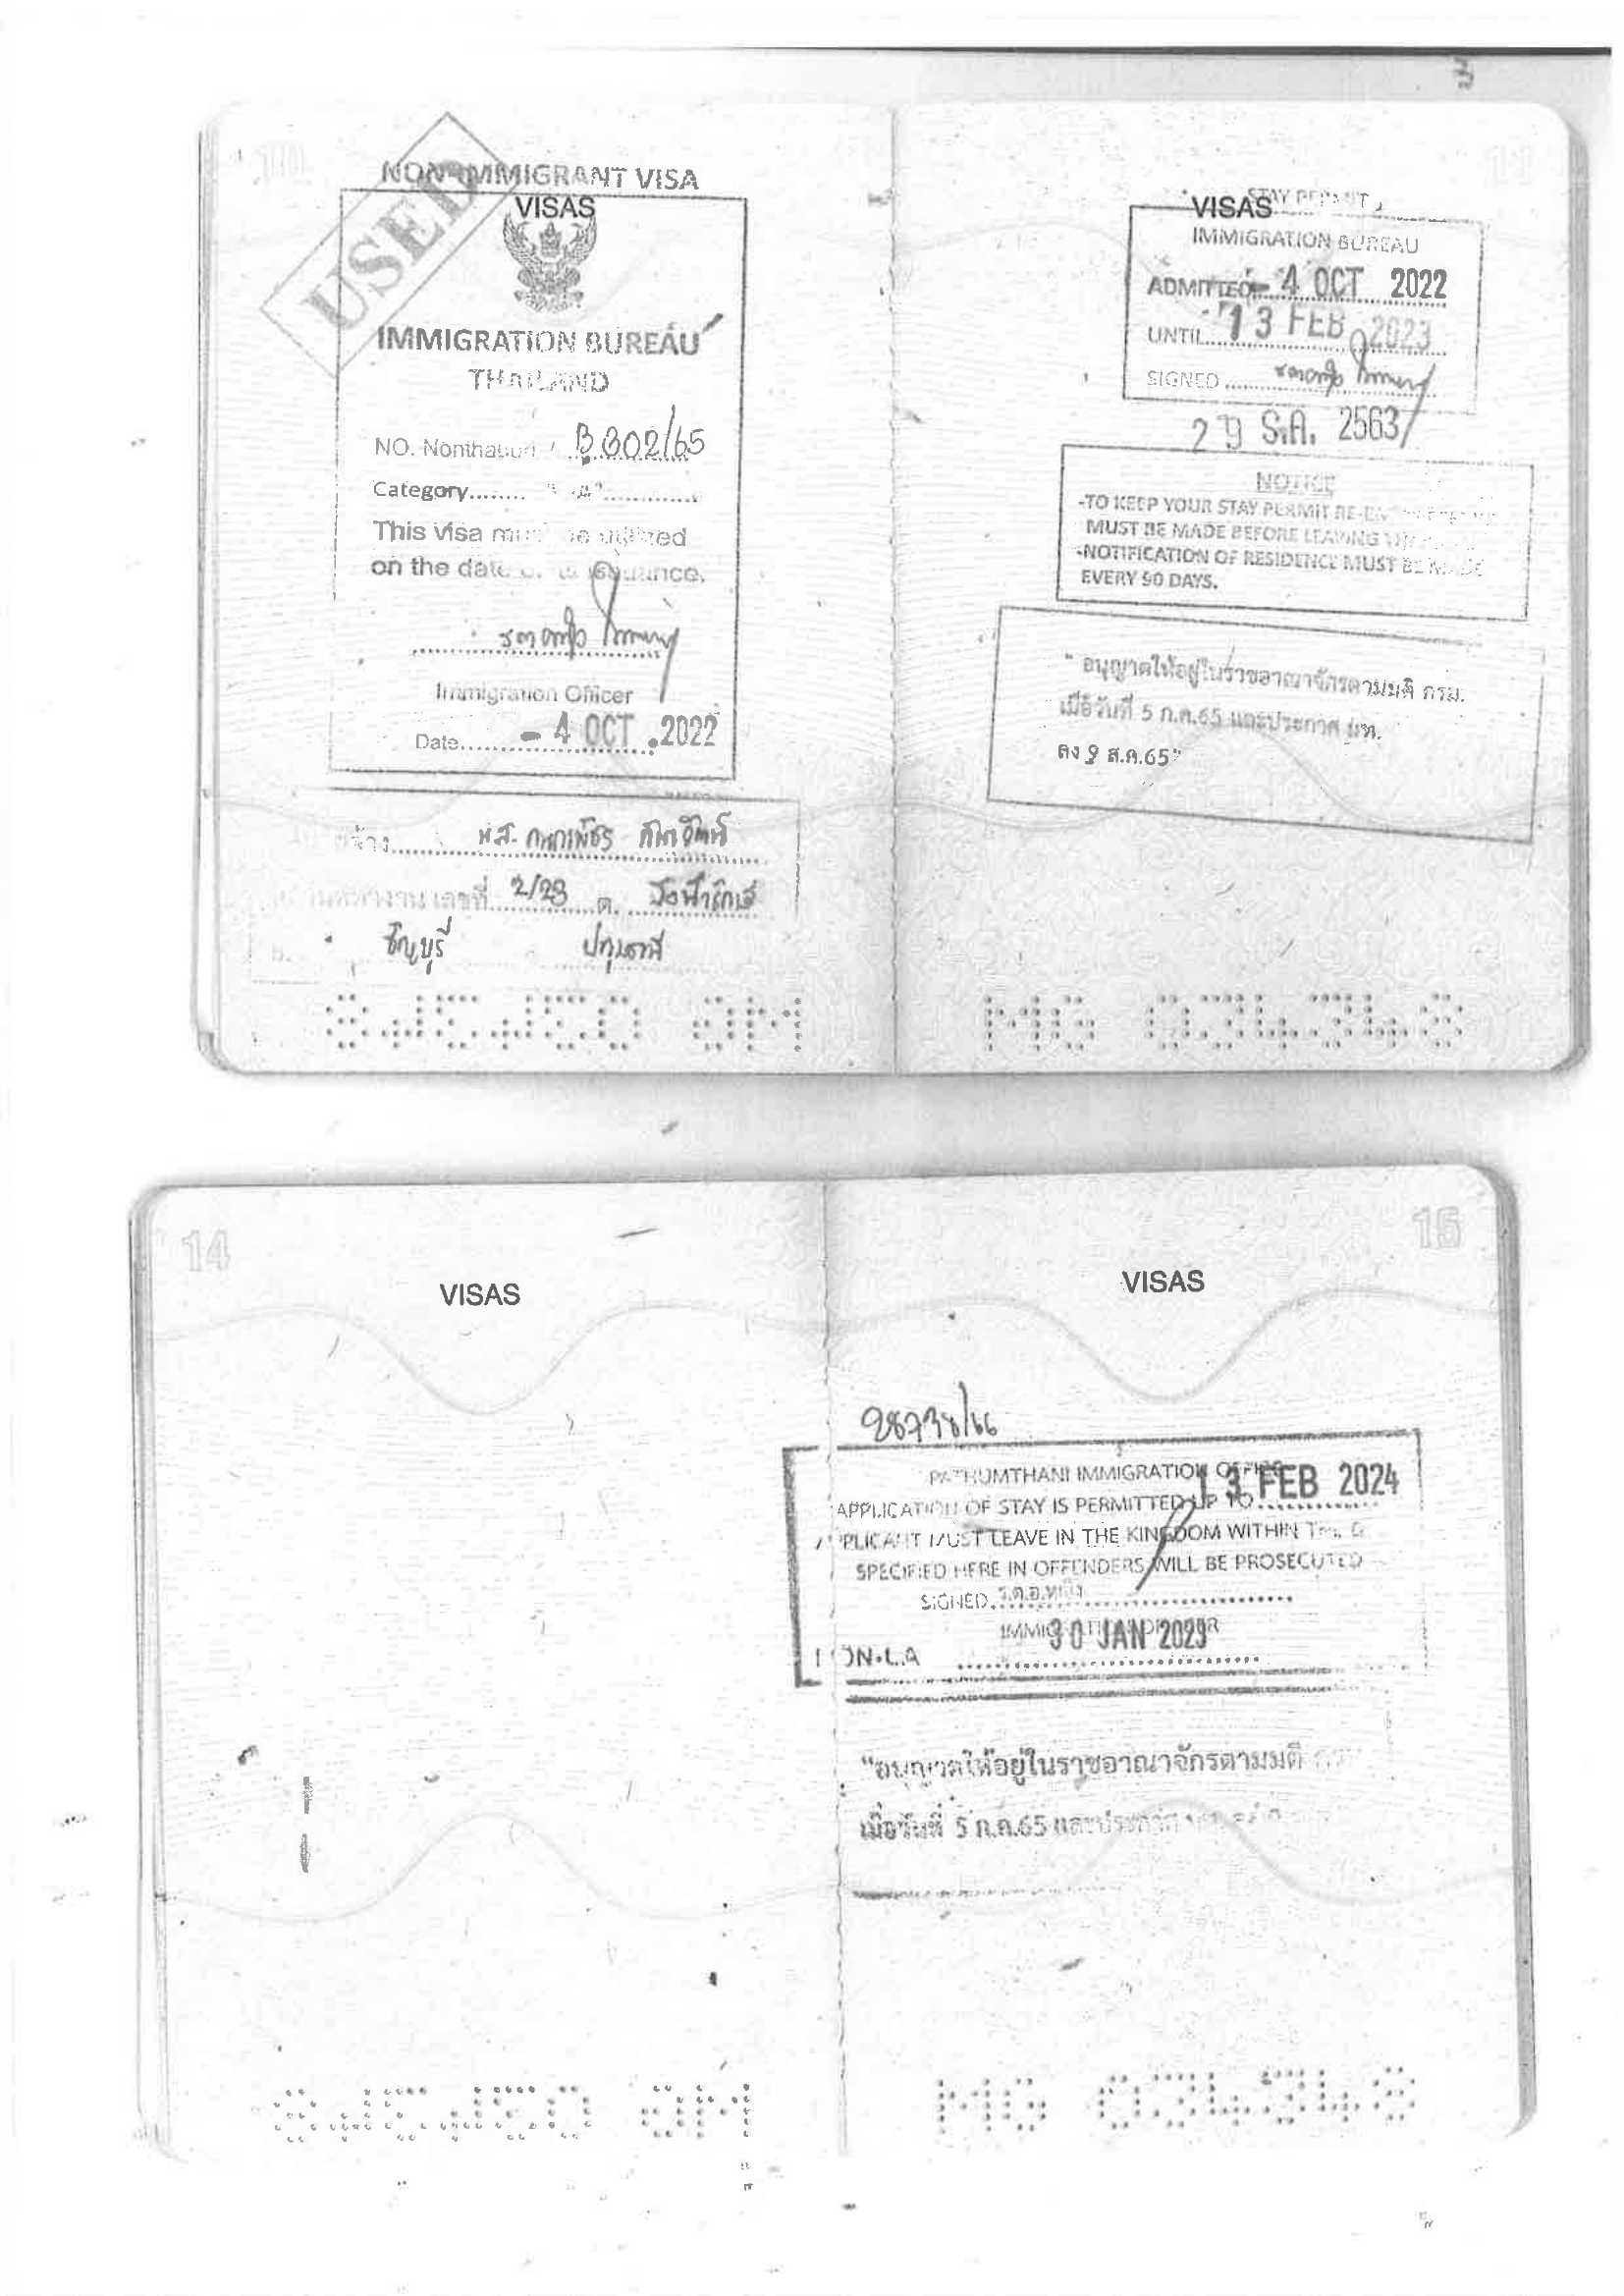 10
NON-IMMIGRANT VISA
VISAS
USED
IMMIGRATION BUREAU
THAILAND
NO. Nonthaburi / B 302/65
Category........
This visa must be utilized
on the date of its issuance.
Immigration Officer
Date - 4 OCT 2022
จ้าง
เลขที่ 2/23 ต.
ธัญบุรี ปทุมธานี
MG 034348
11
STAY PERMIT
VISAS
IMMIGRATION BUREAU
ADMITTED - 4 OCT 2022
UNTIL 13 FEB 2023
SIGNED
29 S.A. 2563
NOTICE
-TO KEEP YOUR STAY PERMIT RE-EN
MUST BE MADE BEFORE LEAVING
-NOTIFICATION OF RESIDENCE MUST BE MADE
EVERY 90 DAYS.
" อนุญาตให้อยู่ในราชอาณาจักรตามมติ ครม.
เมื่อวันที่ 5 ก.ค.65 และประกาศ มท.
ลง 9 ส.ค.65"
MG 034348
14
VISAS
MG 034348
15
VISAS
28738/66
PATHUMTHANI IMMIGRATION OFFICE
APPLICATION OF STAY IS PERMITTED UP TO 13 FEB 2024
APPLICANT MUST LEAVE IN THE KINGDOM WITHIN THE D
SPECIFIED HERE IN OFFENDERS WILL BE PROSECUTED
SIGNED
30 JAN 2023
NON-L.A
"อนุญาตให้อยู่ในราชอาณาจักรตามมติ
เมื่อวันที่ 5 ก.ค.65 และประกาศ
MG 034348